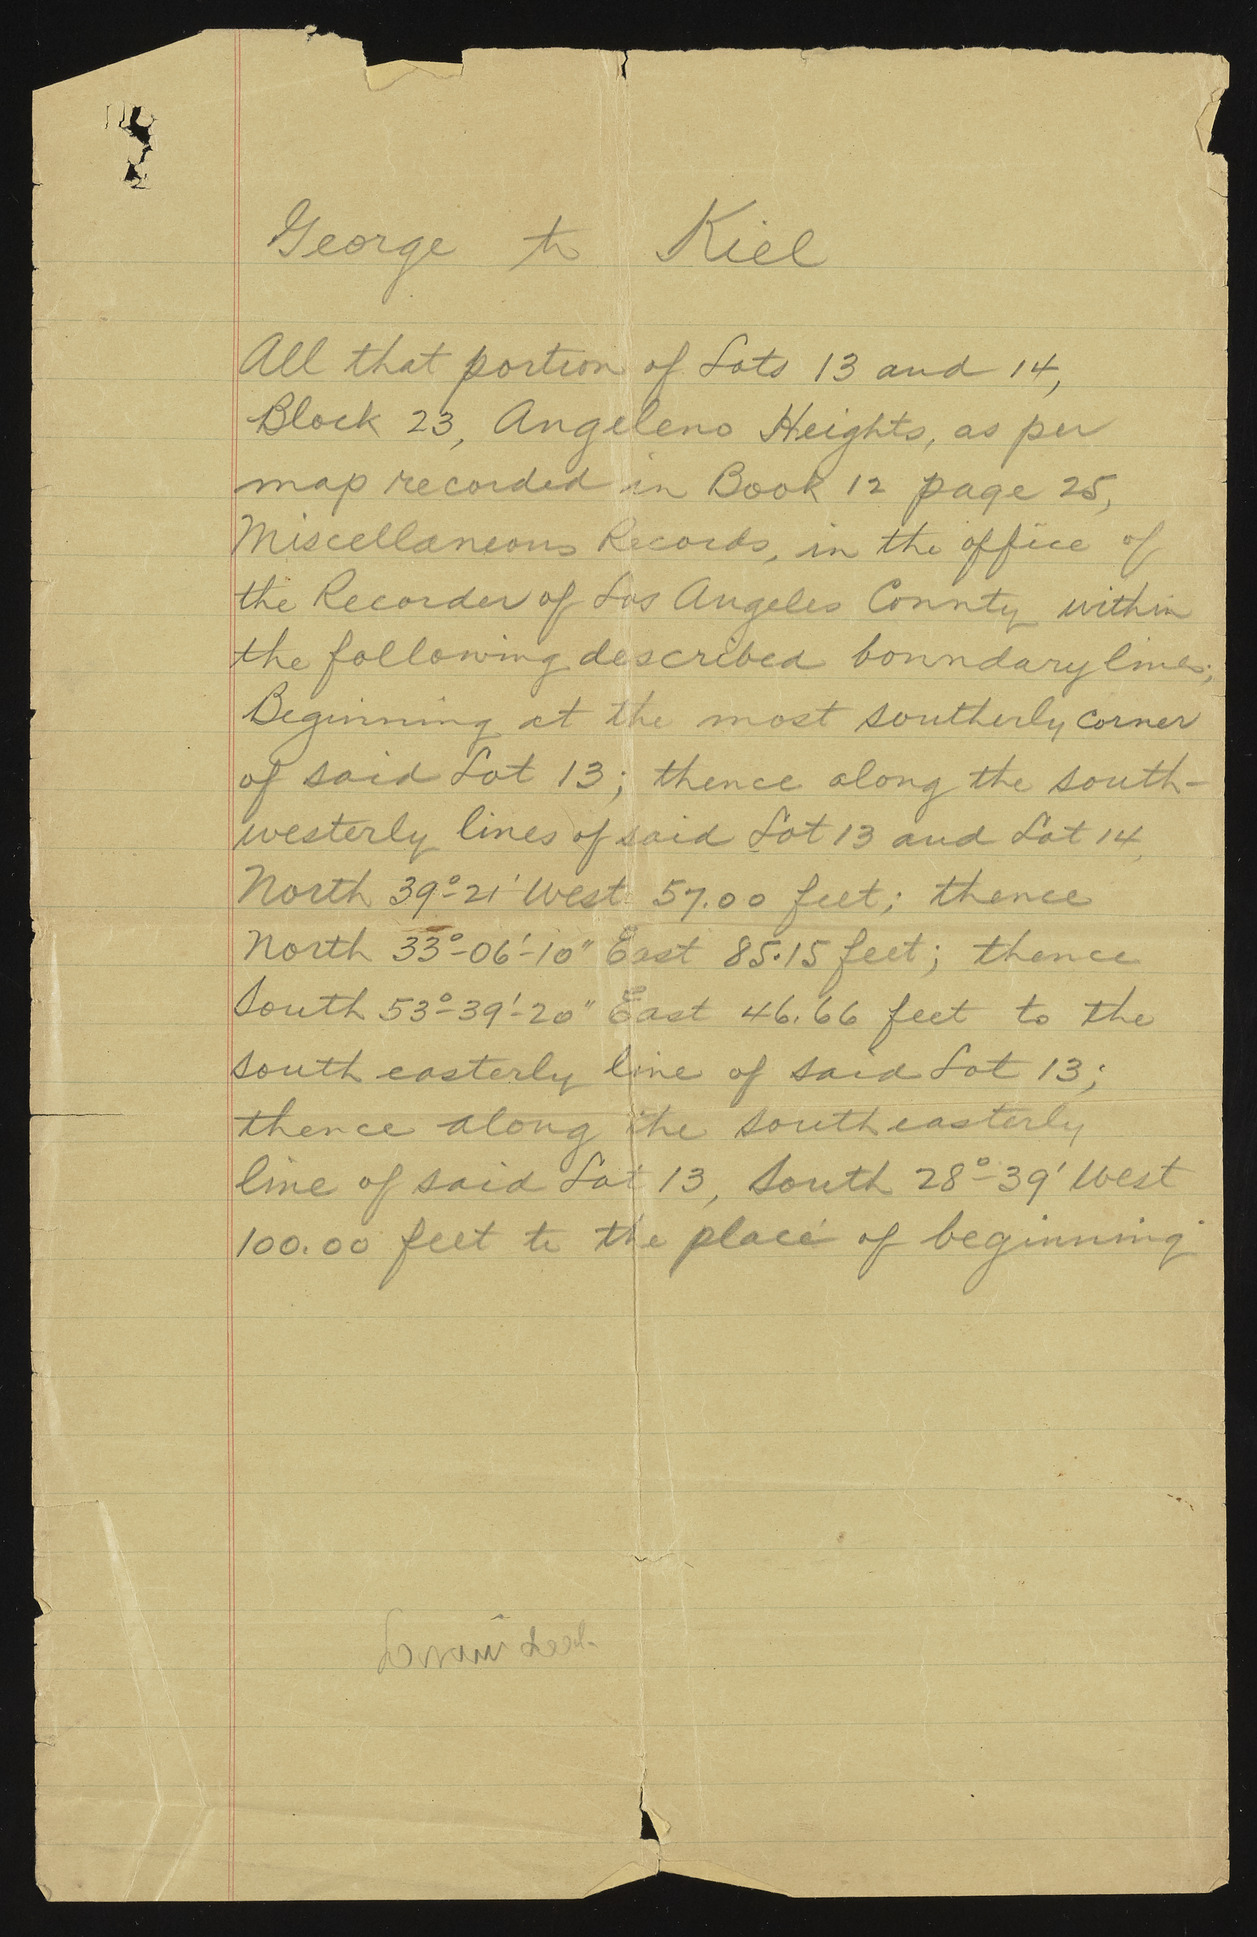 George to Kiel
All that portion of Lots 13 and 14,
Block 23, Angeleno Heights, as per
map recorded in Book 12 page 25,
Miscellaneous Records, in the office of
the Recorder of Los Angeles County within
the following described boundary lines;
Beginning at the most southerly corner
of said Lot 13; thence along the south-
westerly lines of said Lot 13 and Lot 14,
North 39°-21' West 57.00 feet; thence
North 33°-06'-10" East 85.15 feet; thence
South 53°-39'-20" East 46.66 feet to the
south easterly line of said Lot 13;
thence along the south easterly
line of said Lot 13, South 28°-39' West
100.00 feet to the place of beginning